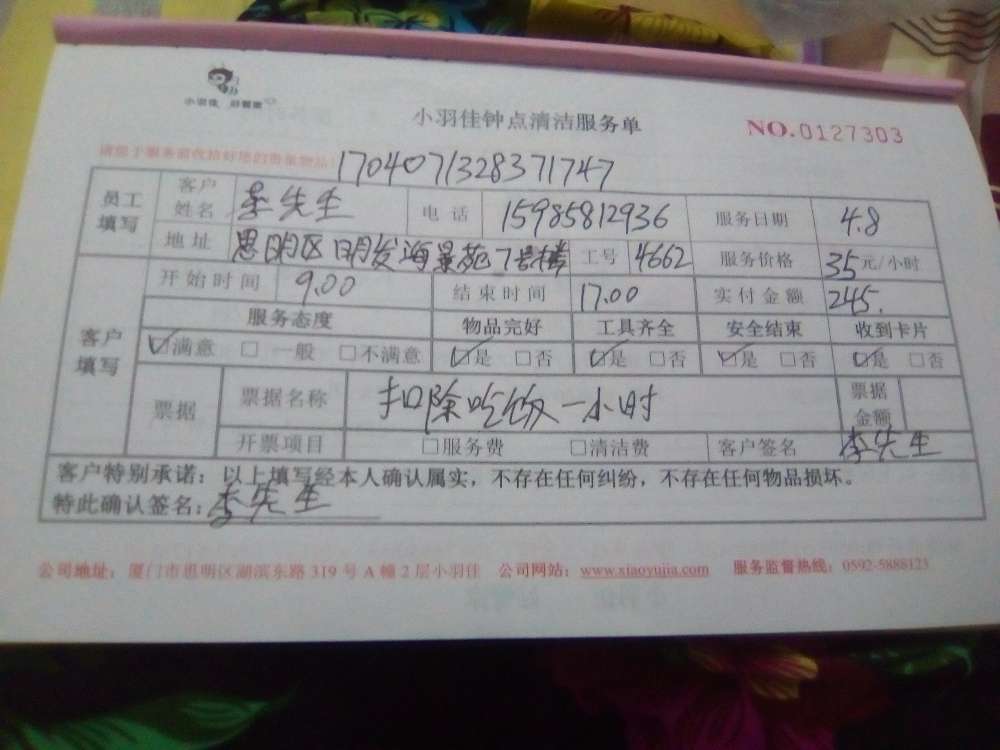 小羽佳 好管家
小羽佳钟点清洁服务单
NO.0127303
请您于服务前收拾好您的贵重物品!
1704071328371747
员工填写 客户姓名 李先生 电话 15985812936 服务日期 4.8
地址 思明区明发海景苑7号楼 工号 4662 服务价格 35元/小时
客户填写 开始时间 9.00 结束时间 17.00 实付金额 245.
服务态度 物品完好 工具齐全 安全结束 收到卡片
☑满意 □一般 □不满意 ☑是 □否 ☑是 □否 ☑是 □否 ☑是 □否
票据 票据名称 扣除吃饭一小时 票据金额
开票项目 □服务费 □清洁费 客户签名 李先生
客户特别承诺：以上填写经本人确认属实，不存在任何纠纷，不存在任何物品损坏。
特此确认签名：李先生
公司地址：厦门市思明区湖滨东路 319 号 A 幢 2 层小羽佳 公司网站：www.xiaoyujia.com 服务监督热线：0592-5888123